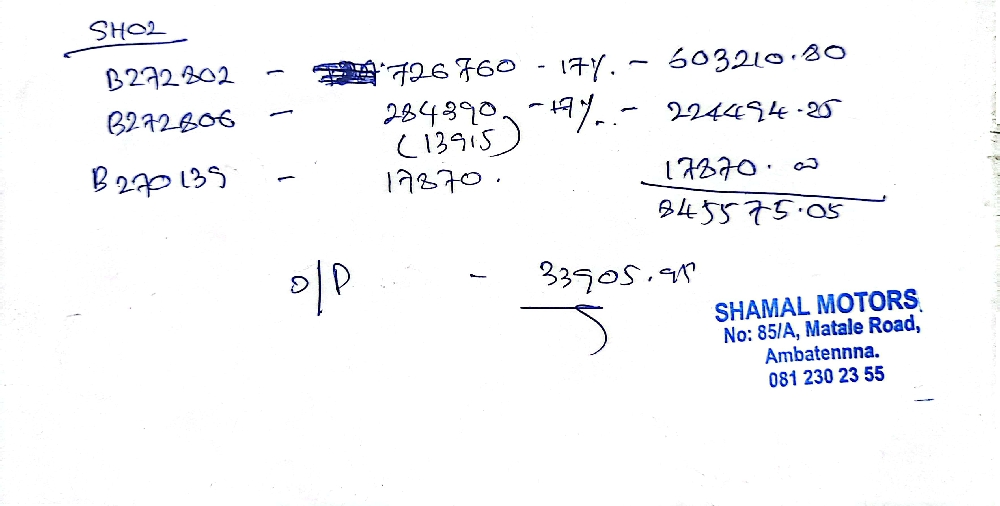 SH02
B272802 - 726760 - 17% - 603210.80
B272806 - 284390 - 17% - 224494.25
(13915)
B270139 - 17870. 17870.00
845575.05
O/P - 33905.95
SHAMAL MOTORS
No: 85/A, Matale Road,
Ambatennna.
081 230 23 55